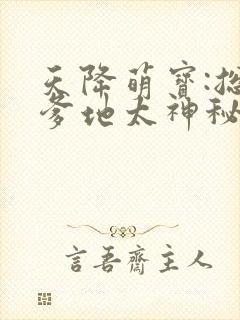 天降萌宝:总
爹地太神秘
言吾斋主人